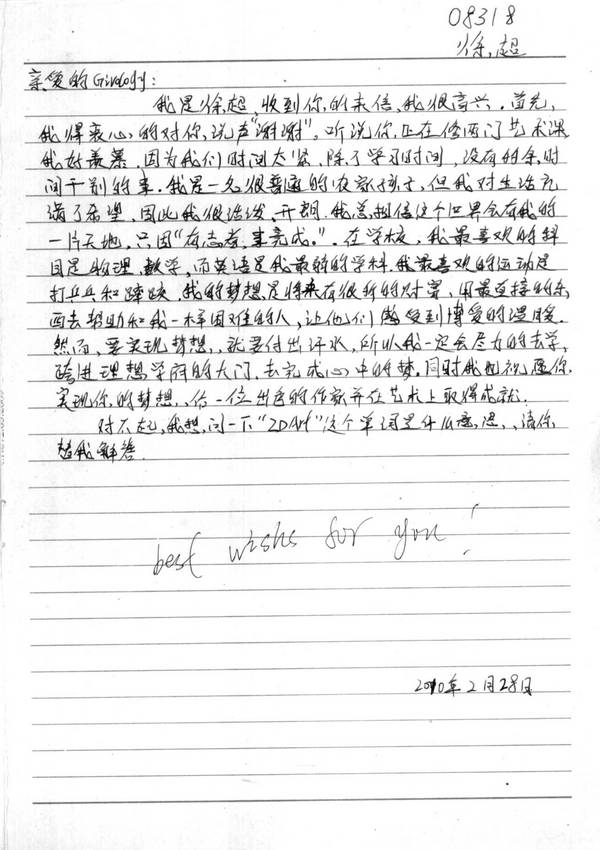 08318
徐超
亲爱的Givology:
我是徐超,收到你的来信,我很高兴。首先,
我得衷心的对你说声"谢谢"。听说你正在修两门艺术课
我好羡慕,因为我们时间太紧,除了学习时间,没有的余时
间干别的事。我是一名很普通的农家孩子,但我对生活充
满了希望,因此我很活泼、开朗。我总相信这个世界会有我的
一片天地,只因"有志者,事竟成。"。在学校,我最喜欢的科
目是物理、数学,而英语是我最弱的学科。我最喜欢的运动是
打乒乓和跳跃。我的梦想是将来有很所的财富,用最直接的东
西去帮助和我一样困难的人,让他们感受到博爱的温暖。
然而,要实现梦想,就要付出汗水,所以我一定会尽力的去学,
跨进理想学府的大门,去完成心中的梦。同时我也祝愿你,
实现你的梦想,份一位出色的作家并在艺术上取得成就。
对不起,我想问一下"2DArt"这个单词是什么意思,请你
替我解答。
best wishs for you!
2010年2月28日